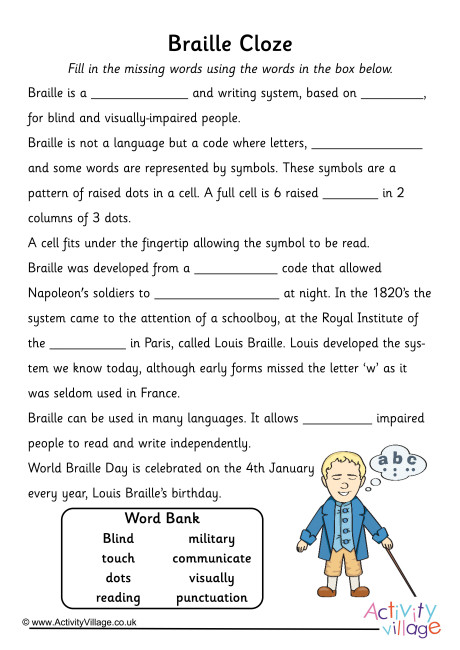 Braille Cloze
Fill in the missing words using the words in the box below.
Braille is a ______________ and writing system, based on _________,
for blind and visually-impaired people.
Braille is not a language but a code where letters, ________________
and some words are represented by symbols. These symbols are a
pattern of raised dots in a cell. A full cell is 6 raised ________ in 2
columns of 3 dots.
A cell fits under the fingertip allowing the symbol to be read.
Braille was developed from a ____________ code that allowed
Napoleon's soldiers to __________________ at night. In the 1820's the
system came to the attention of a schoolboy, at the Royal Institute of
the ___________ in Paris, called Louis Braille. Louis developed the sys-
tem we know today, although early forms missed the letter 'w' as it
was seldom used in France.
Braille can be used in many languages. It allows __________ impaired
people to read and write independently.
World Braille Day is celebrated on the 4th January
every year, Louis Braille's birthday.
a b c
Word Bank
Blind military
touch communicate
dots visually
reading punctuation
© www.ActivityVillage.co.uk
Activity
village